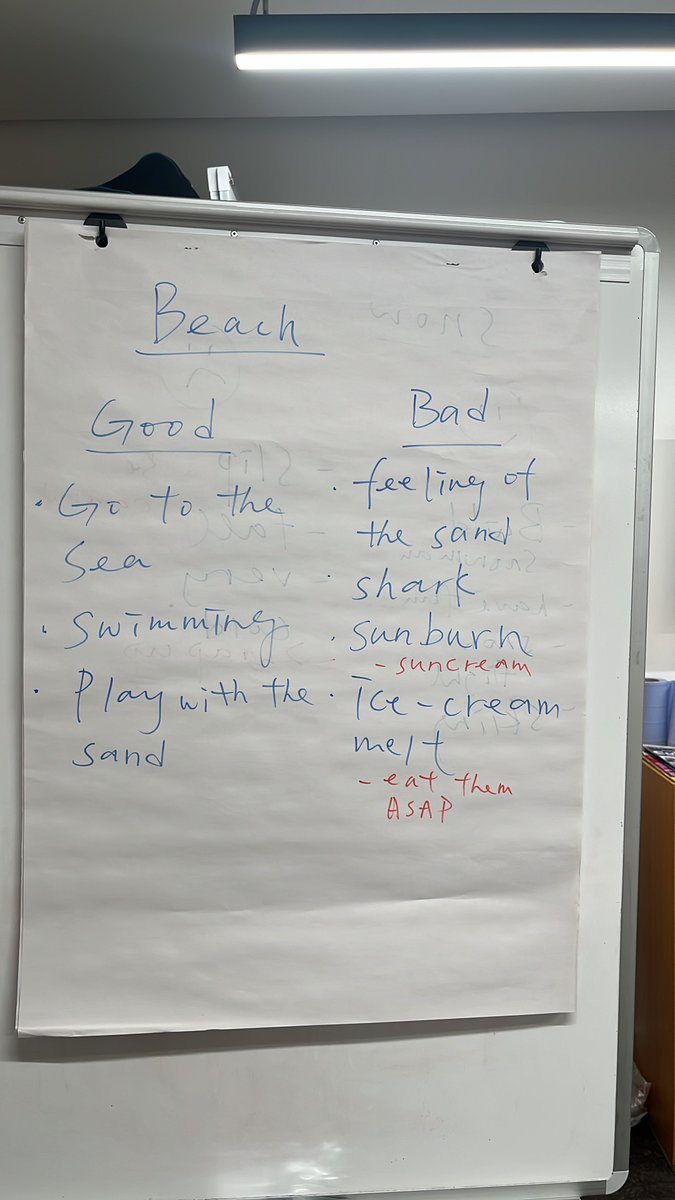 Beach
Good
· Go to the
Sea
· Swimming
· Play with the
sand
Bad
· feeling of
the sand
· shark
· sunburn
- suncream
· ice-cream
melt
- eat them
ASAP
snow
slip
- fall
- very